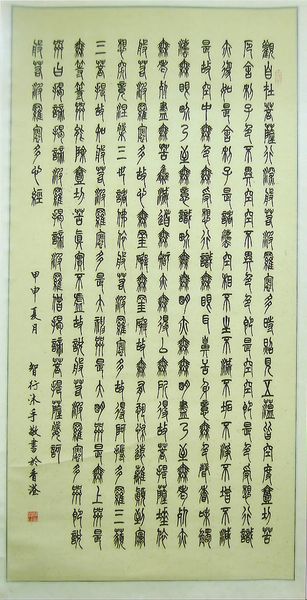 觀自在菩薩行深般若波羅蜜多時照見五蘊皆空度一切苦
厄舍利子色不異空空不異色色即是空空即是色受想行識
亦復如是舍利子是諸法空相不生不滅不垢不淨不增不減
是故空中無色無受想行識無眼耳鼻舌身意無色聲香味觸
法無眼界乃至無意識界無無明亦無無明盡乃至無老死亦
無老死盡無苦集滅道無智亦無得以無所得故菩提薩埵依
般若波羅蜜多故心無罣礙無罣礙故無有恐怖遠離顛倒夢
想究竟涅槃三世諸佛依般若波羅蜜多故得阿耨多羅三藐
三菩提故知般若波羅蜜多是大神咒是大明咒是無上咒是
無等等咒能除一切苦真實不虛故說般若波羅蜜多咒即說
咒曰揭諦揭諦波羅揭諦波羅僧揭諦菩提薩婆訶
般若波羅蜜多心經
甲申夏月 智行沐手敬書於香港